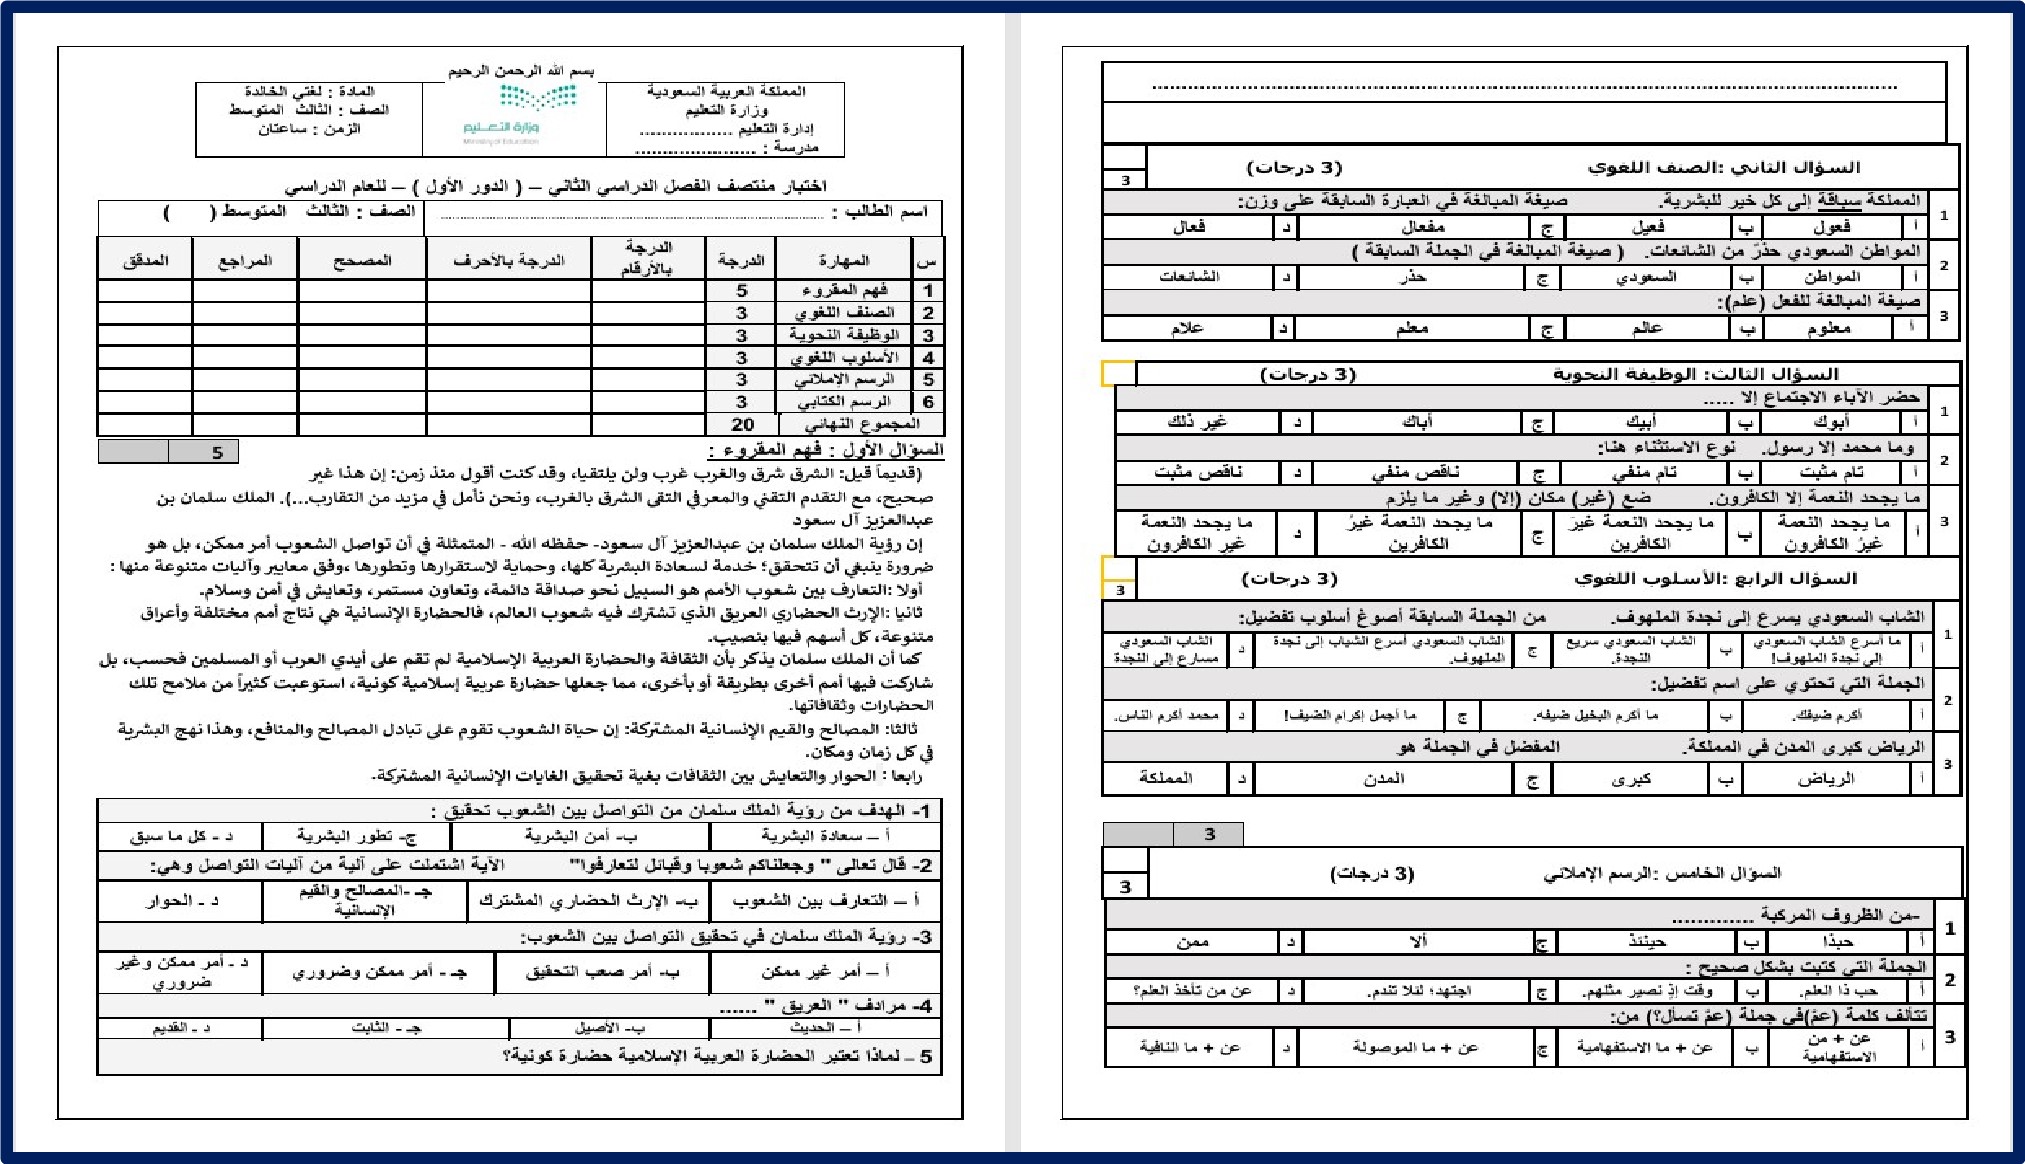 بسم الله الرحمن الرحيم
المملكة العربية السعودية
وزارة التعليم
إدارة التعليم ..................
مدرسة : ......................
وزارة التعليم
Ministry of Education
المادة : لغتي الخالدة
الصف : الثالث المتوسط
الزمن : ساعتان
اختبار منتصف الفصل الدراسي الثاني – ( الدور الأول ) – للعام الدراسي
اسم الطالب : ........................ الصف : الثالث المتوسط ( )
س المهارة الدرجة الدرجة بالأرقام الدرجة بالأحرف المصحح المراجع المدقق
1 فهم المقروء 5
2 الصنف اللغوي 3
3 الوظيفة النحوية 3
4 الأسلوب اللغوي 3
5 الرسم الإملائي 3
6 الرسم الكتابي 3
المجموع النهائي 20
السؤال الأول : فهم المقروء : 5
(قديماً قيل: الشرق شرق والغرب غرب ولن يلتقيا، وقد كنت أقول منذ زمن: إن هذا غير
صحيح، مع التقدم التقني والمعرفي التقى الشرق بالغرب، ونحن نأمل في مزيد من التقارب...). الملك سلمان بن
عبدالعزيز آل سعود
إن رؤية الملك سلمان بن عبدالعزيز آل سعود- حفظه الله - المتمثلة في أن تواصل الشعوب أمر ممكن، بل هو
ضرورة ينبغي أن تتحقق؛ خدمة لسعادة البشرية كلها، وحماية لاستقرارها وتطورها ،وفق معايير وآليات متنوعة منها :
أولا :التعارف بين شعوب الأمم هو السبيل نحو صداقة دائمة، وتعاون مستمر، وتعايش في أمن وسلام.
ثانيا :الإرث الحضاري العريق الذي تشترك فيه شعوب العالم، فالحضارة الإنسانية هي نتاج أمم مختلفة وأعراق
متنوعة، كل أسهم فيها بنصيب.
كما أن الملك سلمان يذكر بأن الثقافة والحضارة العربية الإسلامية لم تقم على أيدي العرب أو المسلمين فحسب، بل
شاركت فيها أمم أخرى بطريقة أو بأخرى، مما جعلها حضارة عربية إسلامية كونية، استوعبت كثيراً من ملامح تلك
الحضارات وثقافاتها.
ثالثا: المصالح والقيم الإنسانية المشتركة: إن حياة الشعوب تقوم على تبادل المصالح والمنافع، وهذا نهج البشرية
في كل زمان ومكان.
رابعا : الحوار والتعايش بين الثقافات بغية تحقيق الغايات الإنسانية المشتركة.
1- الهدف من رؤية الملك سلمان من التواصل بين الشعوب تحقيق :
أ – سعادة البشرية ب- أمن البشرية ج- تطور البشرية د - كل ما سبق
2- قال تعالى " وجعلناكم شعوبا وقبائل لتعارفوا" الآية اشتملت على آلية من آليات التواصل وهي:
أ – التعارف بين الشعوب ب- الإرث الحضاري المشترك جـ -المصالح والقيم الإنسانية د - الحوار
3- رؤية الملك سلمان في تحقيق التواصل بين الشعوب:
أ – أمر غير ممكن ب- أمر صعب التحقيق جـ - أمر ممكن وضروري د - أمر ممكن وغير ضروري
4- مرادف " العريق " ......
أ – الحديث ب- الأصيل جـ - الثابت د - القديم
5 – لماذا تعتبر الحضارة العربية الإسلامية حضارة كونية؟
........................
السؤال الثاني :الصنف اللغوي (3 درجات) 3
1 المملكة سباقة إلى كل خير للبشرية. صيغة المبالغة في العبارة السابقة على وزن:
أ فعول ب فعيل ج مفعال د فعال
2 المواطن السعودي حذرٌ من الشائعات. ( صيغة المبالغة في الجملة السابقة )
أ المواطن ب السعودي ج حذر د الشائعات
3 صيغة المبالغة للفعل (علم):
أ معلوم ب عالم ج معلم د علام
السؤال الثالث: الوظيفة النحوية (3 درجات)
1 حضر الآباء الاجتماع إلا .....
أ أبوك ب أبيك ج أباك د غير ذلك
2 وما محمد إلا رسول. نوع الاستثناء هنا:
أ تام مثبت ب تام منفي ج ناقص منفي د ناقص مثبت
3 ما يجحد النعمة إلا الكافرون. ضع (غير) مكان (إلا) وغير ما يلزم
أ ما يجحد النعمة غيرُ الكافرون ب ما يجحد النعمة غيرَ الكافرين ج ما يجحد النعمة غيرُ الكافرين د ما يجحد النعمة غير الكافرون
السؤال الرابع :الأسلوب اللغوي (3 درجات) 3
1 الشاب السعودي يسرع إلى نجدة الملهوف. من الجملة السابقة أصوغ أسلوب تفضيل:
أ ما أسرع الشاب السعودي إلى نجدة الملهوف! ب الشاب السعودي سريع النجدة. ج الشاب السعودي أسرع الشباب إلى نجدة الملهوف. د الشاب السعودي مسارع إلى النجدة
2 الجملة التي تحتوي على اسم تفضيل:
أ أكرم ضيفك. ب ما أكرم البخيل ضيفه. ج ما أجمل إكرام الضيف! د محمد أكرم الناس.
3 الرياض كبرى المدن في المملكة. المفضل في الجملة هو
أ الرياض ب كبرى ج المدن د المملكة
3
السؤال الخامس :الرسم الإملائي (3 درجات) 3
1 -من الظروف المركبة .............
أ حبذا ب حينئذ ج ألا د ممن
2 الجملة التي كتبت بشكل صحيح :
أ حب ذا العلم. ب وقت إذٍ نصير مثلهم. ج اجتهد؛ لئلا تندم. د عن من تأخذ العلم؟
3 تتألف كلمة (عمّ)في جملة (عمّ تسأل؟) من:
أ عن + من الاستفهامية ب عن + ما الاستفهامية ج عن + ما الموصولة د عن + ما النافية